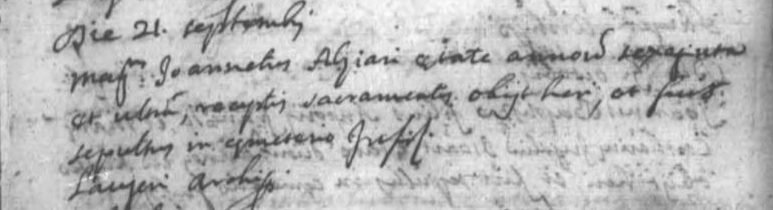 Die 21. septembris
Mag.r Joannetus Alziari etate annorum sexaginta
et ultra, receptis sacramentis obijt heri, et fuit
sepultus in cymeterio
Laugeri Archip.